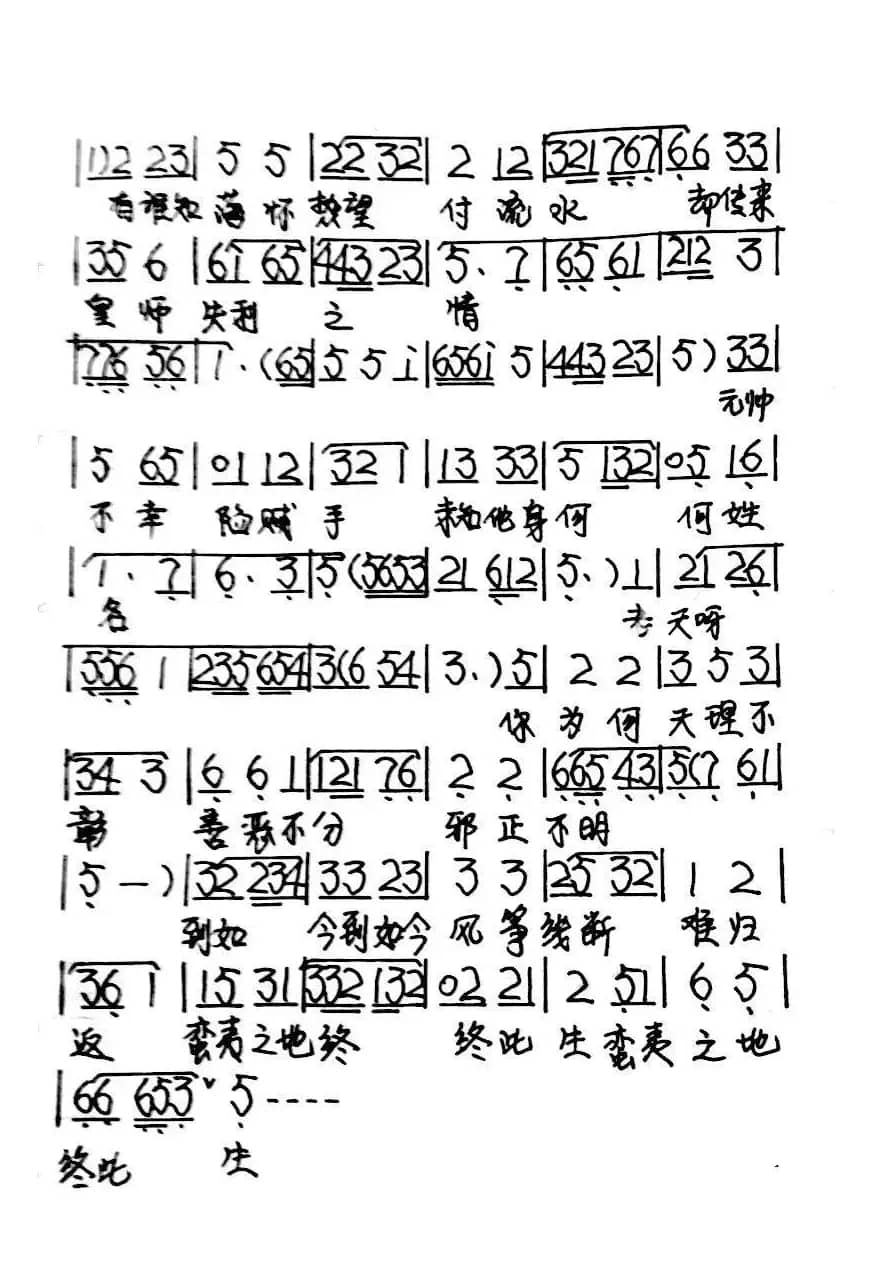 | 1)2 23 | 5 5 | 22 32 | 2 12 | 321 767 | 66 33 |
有谁知 落 怀 数望 付 流 水 却传来
| 35 6 | 6i 65 | 443 23 | 5. 7 | 65 61 | 212 3 |
皇 师 失利 之 情
| 776 56 | 1. (65 | 5 5 i | 656i 5 | 443 23 | 5) 33 |
元帅
| 5 65 | 01 12 | 32 1 | 13 33 | 5 132 | 05 16 |
不 幸 陷贼 手 未知他身何 何 姓
| 1. 7 | 6. 3 | 5 (5653 | 21 612 | 5.) 1 | 21 26 |
名 天呀
| 556 1 | 235 654 | 3(6 54 | 3.) 5 | 2 2 | 3 5 3 |
你 为 何 天理不
| 34 3 | 6 6 1 | 121 76 | 2 2 | 665 43 | 5(7 61 |
彰 善恶不分 邪 正不明
| 5 —) | 32 234 | 33 23 | 3 3 | 25 32 | 1 2 |
到如 今到如今 风 筝 线断 难归
| 36 1 | 15 31 | 332 132 | 02 21 | 2 51 | 6 5 |
返 蛮夷之地终 终此 生蛮夷 之 地
| 66 653 ˅ 5 ----
终此 生